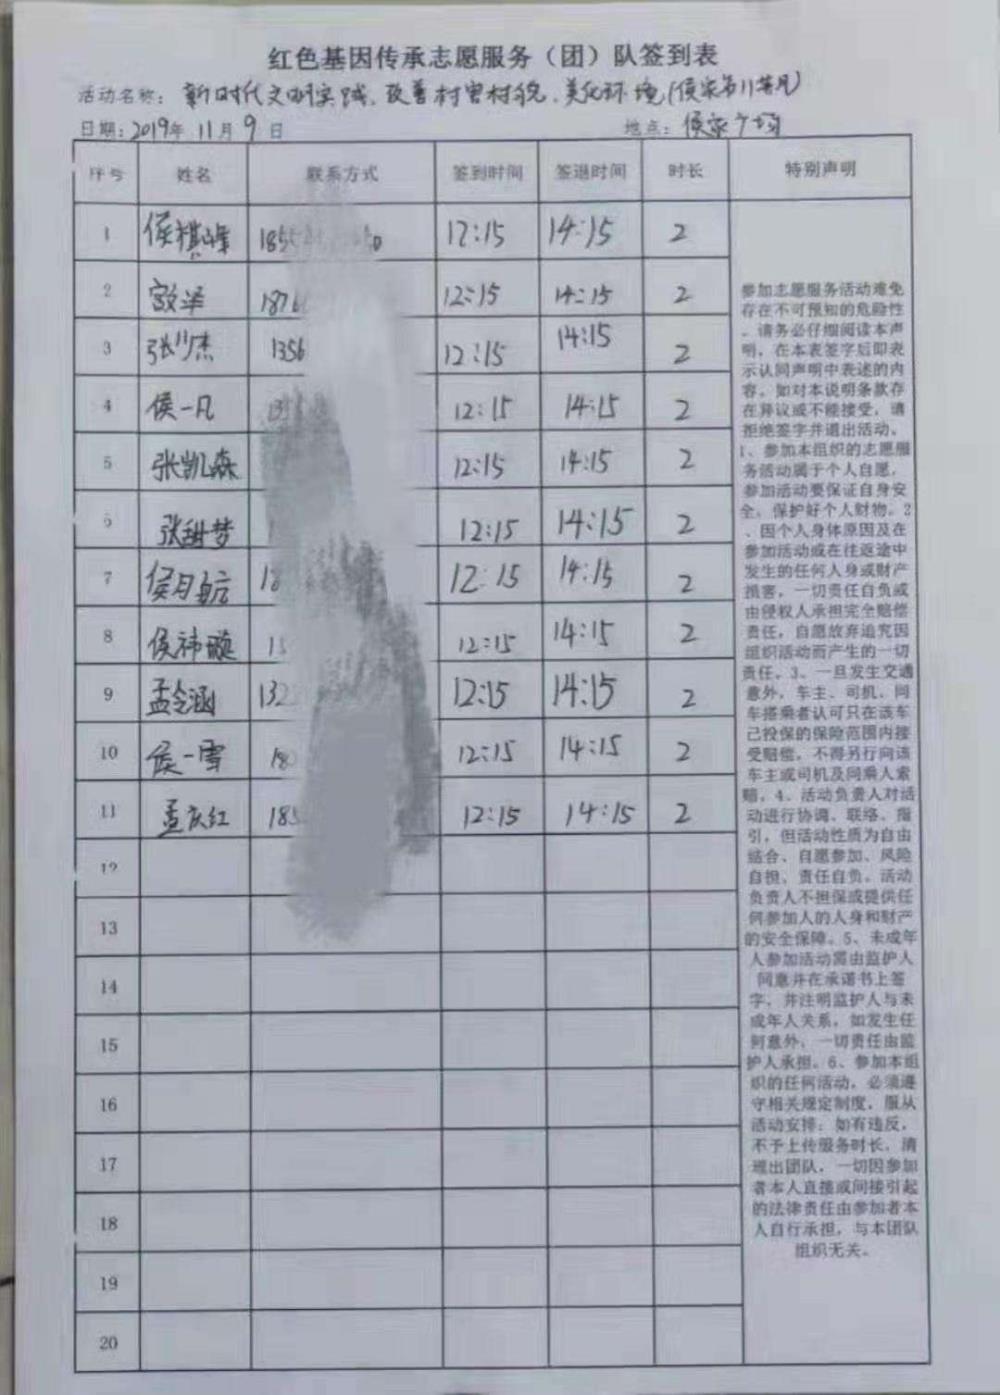 红色基因传承志愿服务（团）队签到表
活动名称：新时代文明实践、改善村容村貌、美化环境(侯家
日期：2019年 11月 9 日 地点：侯家广场
序号 姓名 联系方式 签到时间 签退时间 时长 特别声明
1 侯祺峰 12:15 14:15 2
2 12:15 14:15 2
3 张少杰 1356 12:15 14:15 2
4 侯一凡 12:15 14:15 2
5 张凯森 12:15 14:15 2
6 张甜梦 12:15 14:15 2
7 侯月航 18 12:15 14:15 2
8 侯祎璇 12:15 14:15 2
9 孟令涵 132 12:15 14:15 2
10 侯一雪 180 12:15 14:15 2
11 孟庆红 185 12:15 14:15 2
12
13
14
15
16
17
18
19
20
参加志愿服务活动难免
存在不可预知的危险性
，请务必仔细阅读本声
明，在本表签字后即表
示认同声明中表述的内
容。如对本说明条款存
在异议或不能接受，请
拒绝签字并退出活动。
1、参加本组织的志愿服
务活动属于个人自愿，
参加活动要保证自身安
全，保护好个人财物。2
、因个人身体原因及在
参加活动或在往返途中
发生的任何人身或财产
损害，一切责任自负或
由侵权人承担完全赔偿
责任，自愿放弃追究因
组织活动而产生的一切
责任。3、一旦发生交通
意外，车主、司机、同
车搭乘者认可只在该车
已投保的保险范围内接
受赔偿，不得另行向该
车主或司机及同乘人索
赔。4、活动负责人对活
动进行协调、联络、指
引，但活动性质为自由
结合、自愿参加、风险
自担、责任自负。活动
负责人不担保或提供任
何参加人的人身和财产
的安全保障。5、未成年
人参加活动需由监护人
同意并在承诺书上签
字，并注明监护人与未
成年人关系，如发生任
何意外，一切责任由监
护人承担。6、参加本组
织的任何活动，必须遵
守相关规定制度，服从
活动安排；如有违反，
不予上传服务时长，清
理出团队，一切因参加
者本人直接或间接引起
的法律责任由参加者本
人自行承担，与本团队
组织无关。